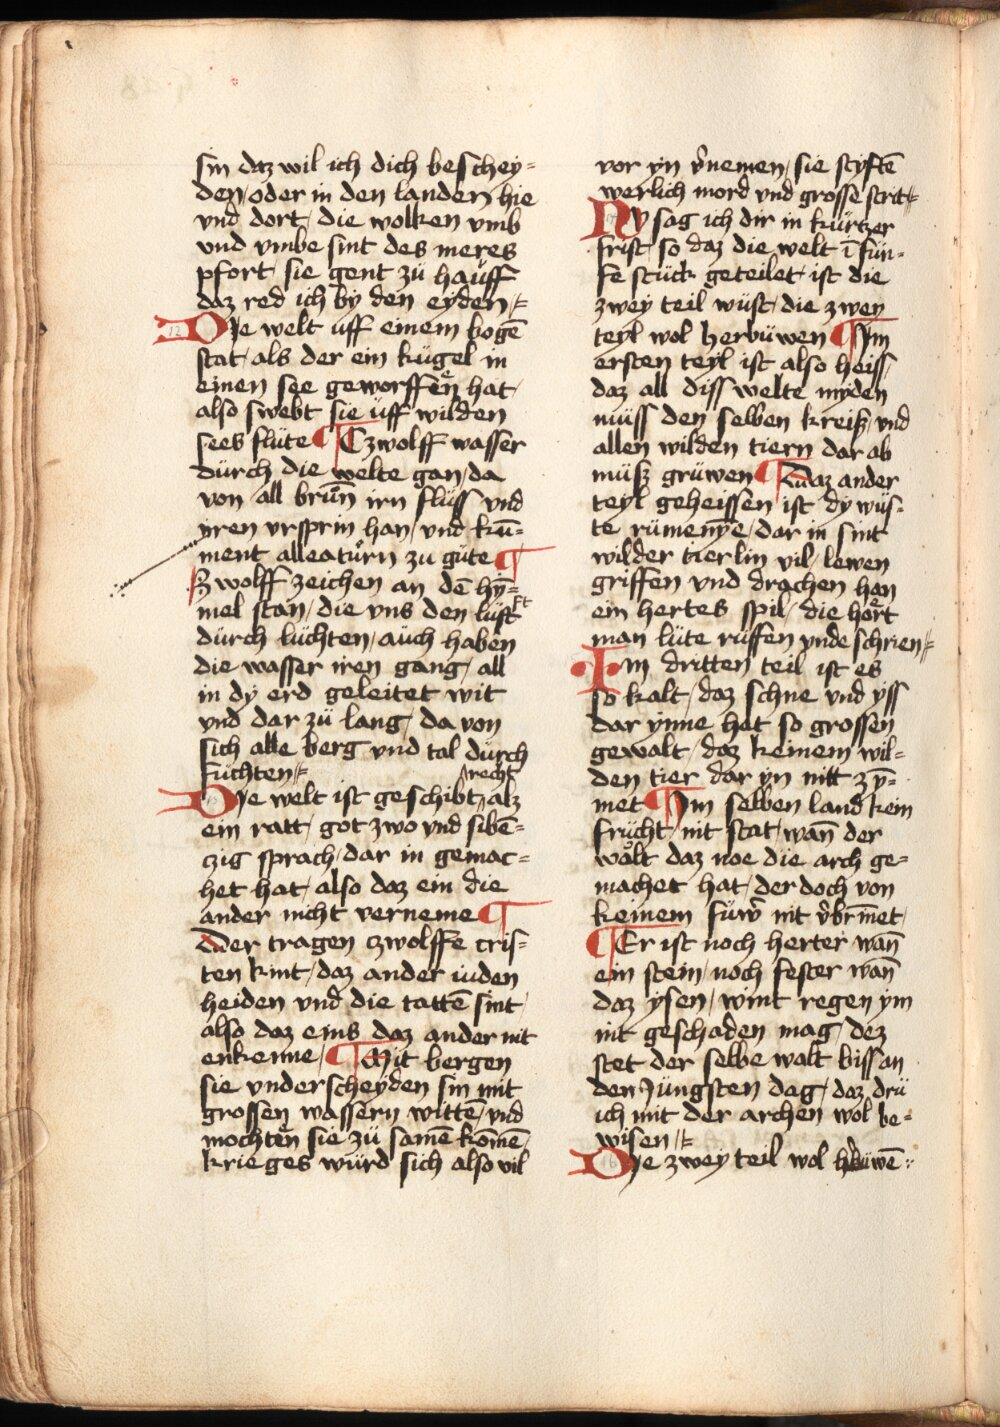 sin daz wil ich dich beschey=
den/ oder in den landen hie
vnd dort/ die wolken vmb
vnd vmbe sint des meres
pfort sie gent zü hauff
daz red ich by den eyden
12 Dje welt uff einem bogē
stat/ als der ein kügel in
einen see geworffen hat/
also swebt sie uff wilden
sees flüte ¶ Czwolff wasser
durch die welte gan/ da
von all brün irn flüss vnd
iren vrsprin han/ vnd kū=
ment alleatürn zu güte ¶
Zwolff zeichen an dē hÿ=
mel stan/ die vns den lüft
dürch lüchten/ auch haben
die wasser iren gang/ all
in dy erd geleitet wit
vnd dar zü lang/ da von
sich alle berg vnd tal dürch
füchten
recht
Dje welt ist geschibt/ alz
ein ratt/ got zwo vnd sibē=
czig sprach/ dar in gemac=
het hat/ also daz ein die
ander nicht verneme ¶
Der tragen czwolffe cris=
ten kint/ daz ander iuden
heiden vnd die tattē sint/
also daz eins daz ander nit
enkenne/ ¶ Mit bergen
sie vnderscheyden sin mit
grossen wassern wittē/ vnd
mochten sie zü samē komē/
krieges würd sich also vil
vor yn v̓nemen/ sie styftē
werlich mord vnd grosse strit
Nv sag ich dir in kürtzer
frist/ so daz die welt ī fün=
fe stück geteilet ist die
zwey teil wüst/ die zwey
teyl wol herbüwen ¶ Jm
ersten teyl ist also heiss/
daz all diss welte myden
müss den selben kreiß/ vnd
allen wilden tiern dar ab
müß grüwen ¶ daz ander
teyl geheissen ist dy wüs=
te rümenye/ dar in sint
wilder tierlin vil/ lewen
griffen vnd drachen han
ein hertes spil/ die hört
man lüte rüffen vnde schrien
Im dritten teil ist es
so kalt/ daz schne vnd yss
dar ynne het so grossen
gewalt/ daz keinem wil=
den tier dar yn nitt zy̅=
met ¶ Jm selben land kein
frücht/ nit stat/ wañ der
walt daz noe die arch ge=
machet hat/ der doch von
keinem füw̓ nit v̓br̄met/
¶ Er ist noch herter wañ
ein stein/ noch fester wañ
daz ysen/ wint regen ym
nit geschaden mag/ dez
stet der selbe walt biss an
den Jüngsten dag/ daz drü
ich mit der archen wol be=
wisen
16 Dje zwey teil wol h̓büwē